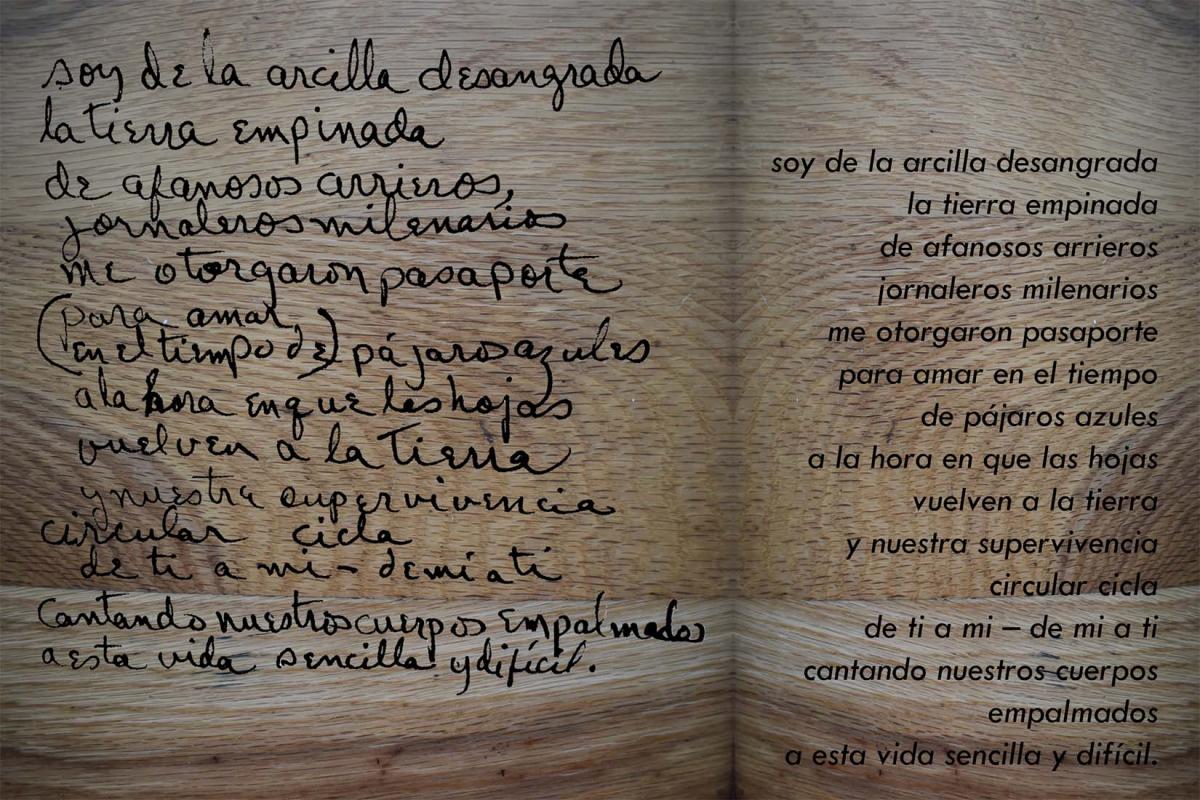 soy de la arcilla desangrada
la tierra empinada
de afanosos arrieros,
jornaleros milenarios
me otorgaron pasaporte
(para amar,
en el tiempo de) pájaros azules
a la hora en que las hojas
vuelven a la tierra
y nuestra supervivencia
circular cicla
de ti a mi – de mí a ti
cantando nuestros cuerpos empalmados
a esta vida sencilla y difícil.
soy de la arcilla desangrada
la tierra empinada
de afanosos arrieros
jornaleros milenarios
me otorgaron pasaporte
para amar en el tiempo
de pájaros azules
a la hora en que las hojas
vuelven a la tierra
y nuestra supervivencia
circular cicla
de ti a mi – de mi a ti
cantando nuestros cuerpos
empalmados
a esta vida sencilla y difícil.